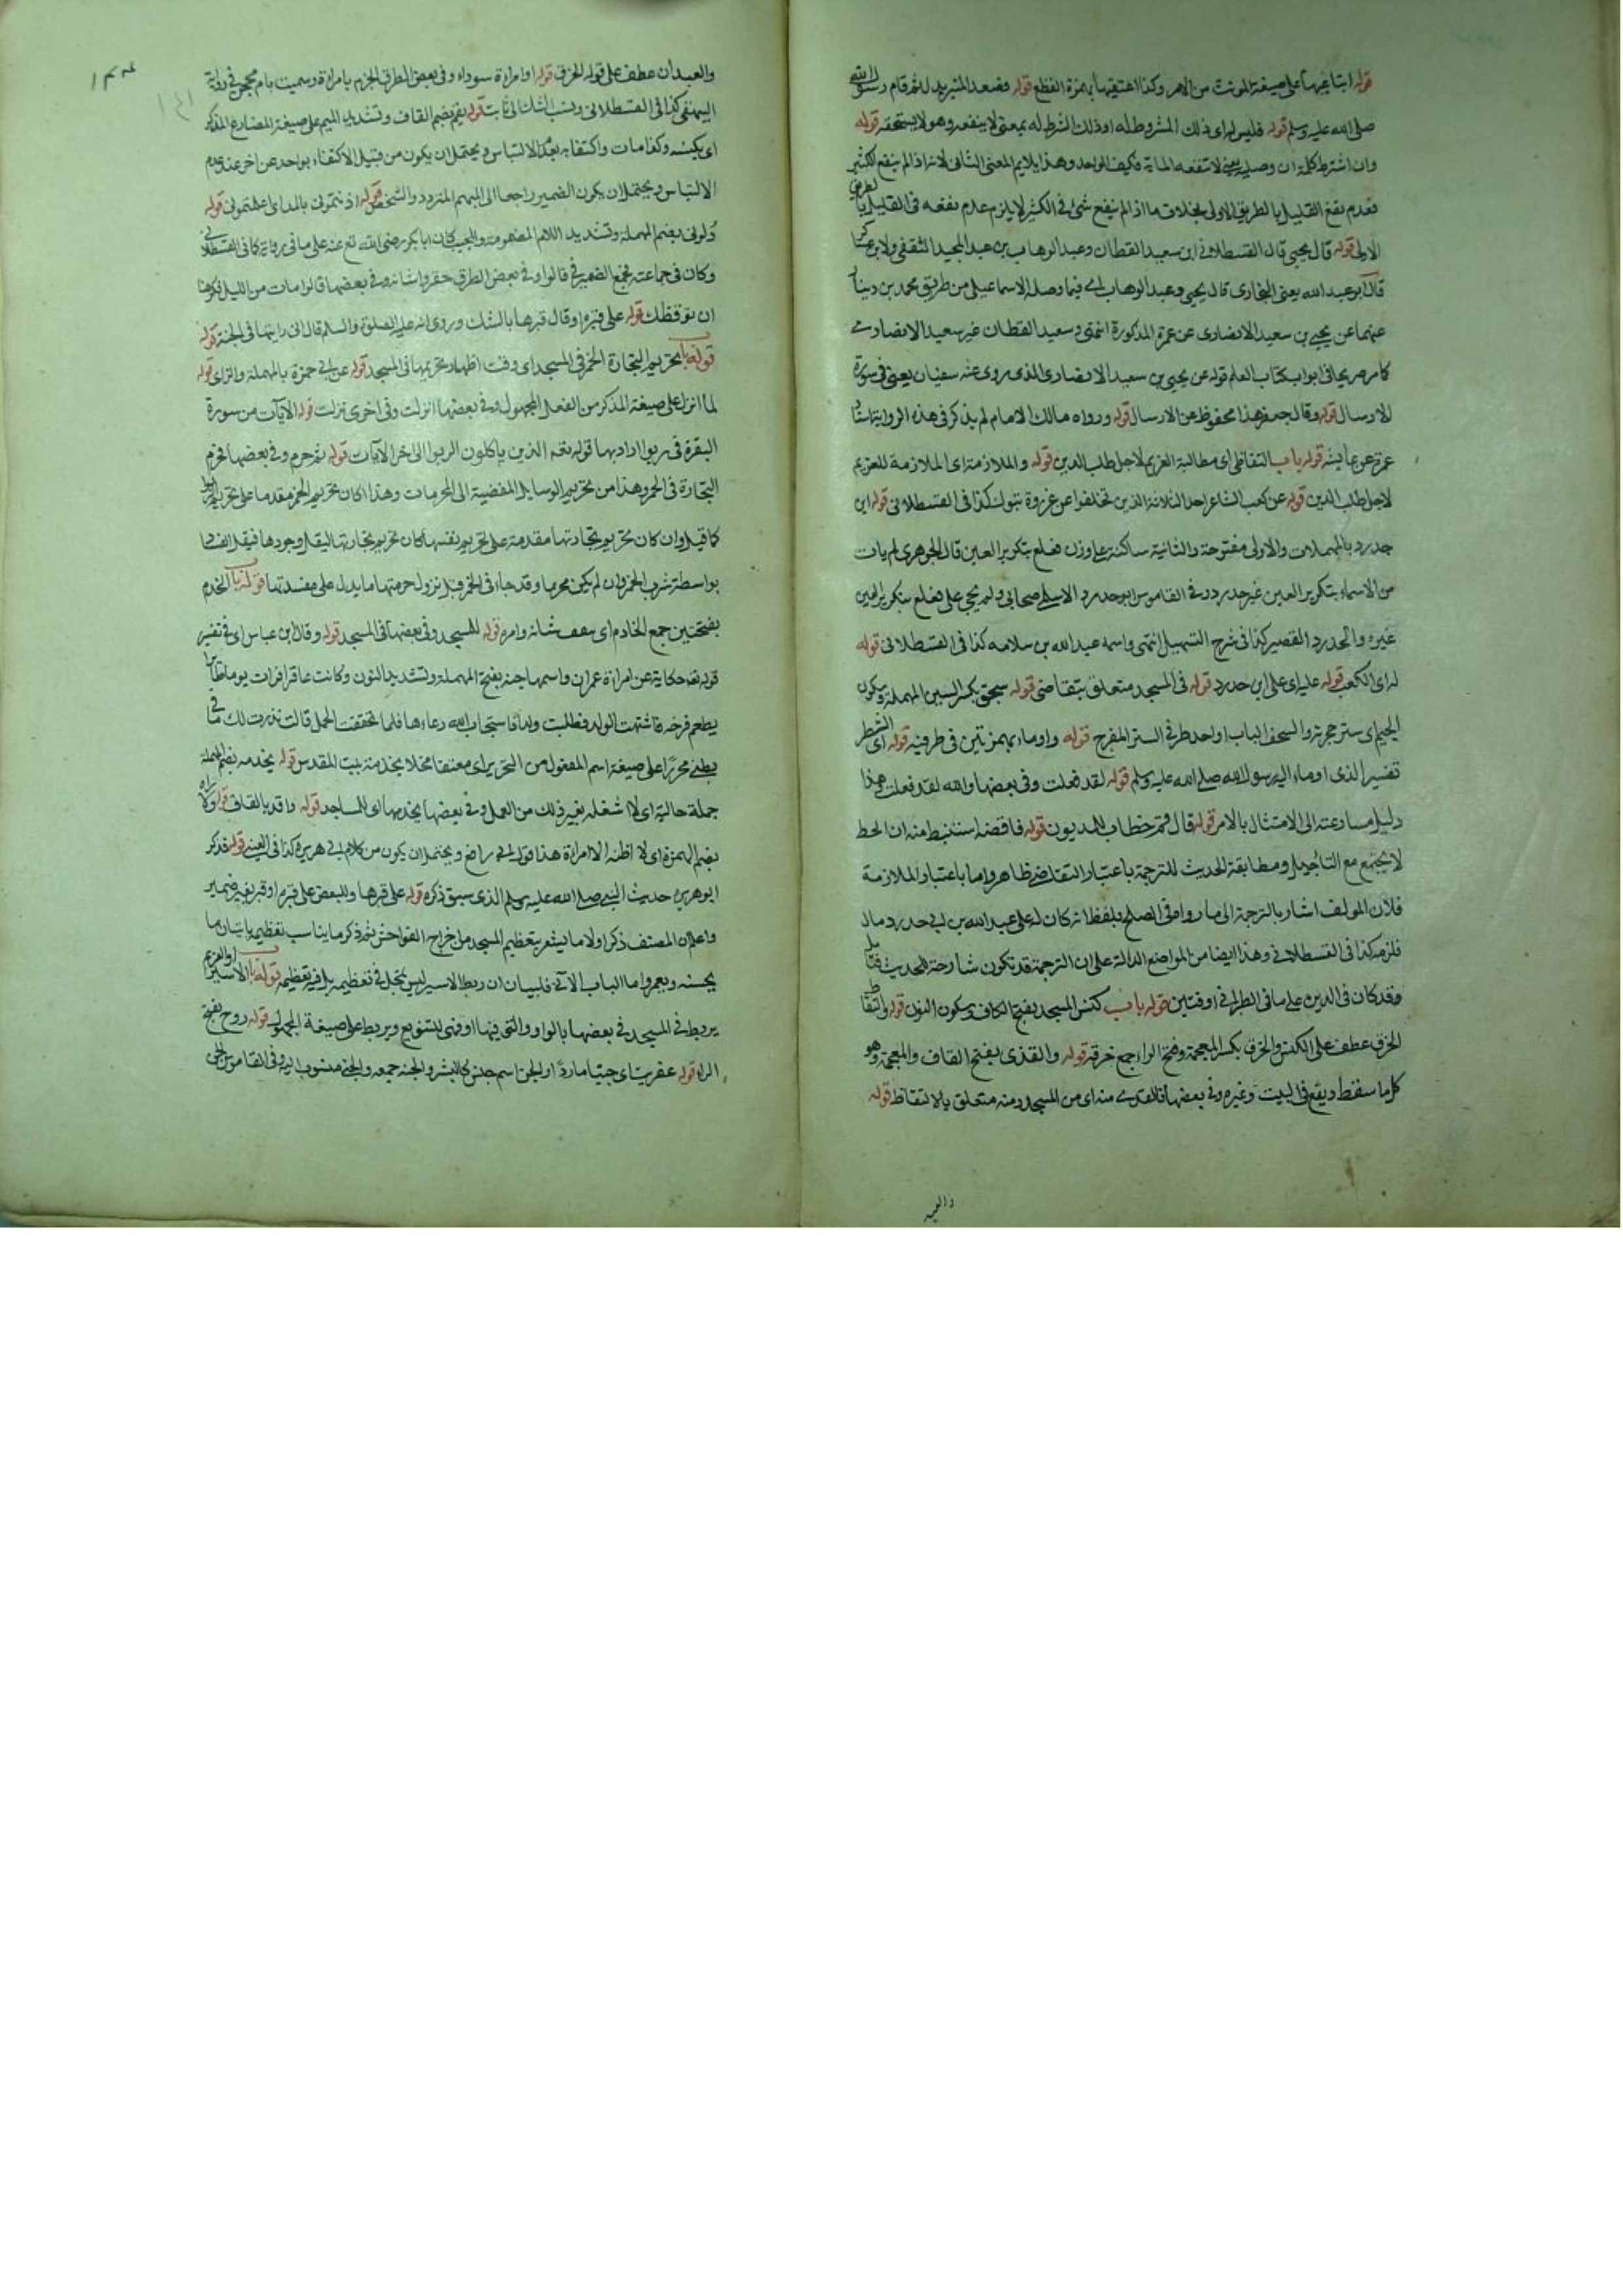 قوله ابتاعيها على صيغة المونث من الامر وكذا اعتقيها بهمزة القطع قوله فصعد المنبر بدل ثم قام رسول الله
صلى الله عليه وسلم قوله فليس له اى ذلك المشروط له او ذلك الشرط له بمعنى لا ينفعه وهو لا يستحقه قوله
وان اشترط كلمة ان وصلية يعنى لا تنفعه الماية فكيف الواحد وهذا يلايم المعنى الثانى لانه اذا لم ينفع الكثير
فعدم نفع القليل بالطريق الاولى بخلاف ما اذا لم ينفع شئ فى الكثير لا يلزم عدم نفعه فى القليل بالطريق
الاولى قوله قال يحيى قال القسطلانى ابن سعيد القطان وعبد الوهاب بن عبد المجيد الثقفى ولابن عساكر
قال ابو عبد الله يعنى البخارى قال يحيى وعبد الوهاب اى فيما وصله الاسماعيلى من طريق محمد بن دينار
عنهما عن يحيى بن سعيد الانصارى عن عمرة المذكورة انتهى وسعيد القطان غير سعيد الانصارى
كما مر صريحا فى ابواب كتاب العلم قوله عن يحيى بن سعيد الانصارى الذى روى عنه سفيان يعنى فى سورة
الارسال قوله وقال جعفر هذا محفوظ عن الارسال قوله ورواه مالك الامام لم يذكر فى هذه الرواية اسناد
عمرة عن عايشه قوله باب التقاضى اى مطالبة الغريم لاجل طلب الدين قوله والملازمة اى الملازمة للغريم
لاجل طلب الدين قوله عن كعب الشاعر احد الثلاثة الذين تخلفوا عن غزوة تبوك كذا فى القسطلانى قوله ابن
حدرد بالمهملات والاولى مفتوحة والثانية ساكنة على وزن فعلع بتكرير العين قال الجوهرى لم يات
من الاسماء بتكرير العين غير حدرد وفى القاموس ابو حدرد الاسلمى صحابى ولم يجئ على فعلع بتكرير العين
غيره والحدرد القصير كذا فى شرح التسهيل انتهى واسمه عبد الله بن سلامه كذا فى القسطلانى قوله
له اى الكعب قوله عليه اى على ابن حدرد قوله فى المسجد متعلق بتقاضى قوله سجف بكسر السين المهملة وسكون
الجيم اى ستر حجرته والسجف الباب او احد طرفى الستر المفرج قوله واوماء بهمزتين فى طرفيه قوله اى الشطر
تفسير الذى اوماء اليه رسول الله صلى الله عليه وسلم قوله لقد فعلت وفى بعضها والله لقد فعلت هذا
دليل مسارعته الى الامتثال بالامر قوله قال قم خطاب للمديون قوله فاقضه استنبط منه ان الحط
لا يجتمع مع التاجيل ومطابقة الحديث للترجمة باعتبار التقاضى ظاهر واما باعتبار الملازمة
فلان المولف اشار بالترجمة الى ما رواه فى الصلح بلفظ انه كان له على عبد الله بن ابى حدرد مال
فلزمه كذا فى القسطلانى وهذا ايضا من المواضع الدالة على ان الترجمة قد تكون شارحة للحديث فتامل
وقد كان فى الدين على ما فى الطبرانى اوقيتين قوله باب كنس المسجد بفتح الكاف وسكون النون قوله والتقاط
الخرق عطف على الكنس والخرق بكسر المعجمة وفتح الراء جمع خرقة قوله والقذى بفتح القاف والمعجمة وهو
كل ما سقط ويقع فى البيت وغيره وفى بعضها فالقذى منه اى من المسجد ومنه متعلق بالالتقاط قوله
والعيد
والعيدان عطف على قوله الخرق قوله او امراءة سوداء وفى بعض الطرق الجزم بامراءة وسميت بام محجن فى رواية
البيهقى كذا فى القسطلانى ونسب الشك الى ثابت قوله يقم بضم القاف وتشديد الميم على صيغة المضارع المذكر
اى يكنسه وكذا مات واكتفا به بعد الالتباس ويحتمل ان يكون من قبيل الاكتفاء بواحد عن اخر عند عدم
الالتباس ويحتمل ان يكون الضمير راجعا الى المبهم المتردد والشخص قوله اذنتمونى بالمد اى اعلمتمونى قوله
دلونى بضم المهملة وتشديد اللام المضمومة والمجيب كان ابا بكر رضى الله تع عنه على ما فى رواية كما فى القسطلانى
وكان فى جماعته فجمع الضمير فى قالوا وفى بعض الطرق حقروا شانه وفى بعضها قالوا مات من الليل فكرهنا
ان نوقظك قوله على قبره او قال قبرها بالشك وروى انه عليه الصلوة والسلم قال انى رايتها فى الجنة قوله
قوله باب تحريم التجارة الخمر فى المسجد اى وقت اظهار تحريمها فى المسجد قوله عن ابى حمزة بالمهملة والزاى قوله
لما انزل على صيغة المذكر من الفعل المجهول وفى بعضها انزلت وفى اخرى نزلت قوله الايات من سورة
البقرة فى ربوا اراد بها قوله تعم الذين ياكلون الربوا الى اخر الايات قوله ثم حرم وفى بعضها فحرم
التجارة فى الخمر وهذا من تحريم الوسايل المفضية الى المحرمات وهذا اكان تحريم الخمر مقدما على تحريم الربوا
كما قيل وان كان تحريم تجارتها مقدمة على تحريم نفسها كان تحريم تجارتها ليقل وجودها فيقل
بواسطة شرب الخمر وان لم يكن محرما وقد جاء فى الخمر قبل نزول حرمتها ما يدل على مفسدتها قوله باب الخدم
بفتحتين جمع الخادم اى شانه وامره قوله للمسجد وفى بعضها فى المسجد قوله وقال ابن عباس اى فى تفسير
قوله تعم حكاية عن امراءة عمران واسمها حنه بفتح المهملة وتشديد النون وكانت عاقرا فرات يوما طايرا
يطعم فرخه فاشتهت الولد فطلبت ولدا فاستجاب الله دعاءها فلما تحققت الحمل قالت نذرت لك ما فى
بطنى محررا على صيغة اسم المفعول من التحرير اى معتقا مخلا يخدمة بيت المقدس قوله يخدمه بضم المهملة
جملة حالية اى لا اشغله بغير ذلك من العمل وفى بعضها يخدمها اى المساجد قوله واقد بالقاف قوله ولا اراه
بضم الهمزة اى لا اظنه الا امراءة هذا قول ابى رافع ويحتمل ان يكون من كلام ابى هريره كذا فى العينى قوله فذكر
ابو هريره حديث النبى صلى الله عليه وسلم الذى سبق ذكره قوله على قبرها وللبعض على قبره او قبر بغير ضمير
واعلم ان المصنف ذكر اولا ما يشعر بتعظيم المسجد من اخراج الفواحش ثم ذكر ما يناسب تعظيمه باتيان ما
يحسنه ويعمر واما الباب الاتى فلبيان ان ربط الاسير ليس بمخل فى تعظيمه بل فيه تعظيمه قوله باب الاسير او الغريم
يربط فى المسجد وفى بعضها بالواو والتى فيها او فهى للتنويع ويربط على صيغة المجهول قوله روح بفتح
الراء قوله عفريت اى جنيا ماردا او الجن اسم جنس كالبشر والجنه جمعه والجنى منسوب اليه وفى القاموس الجنى